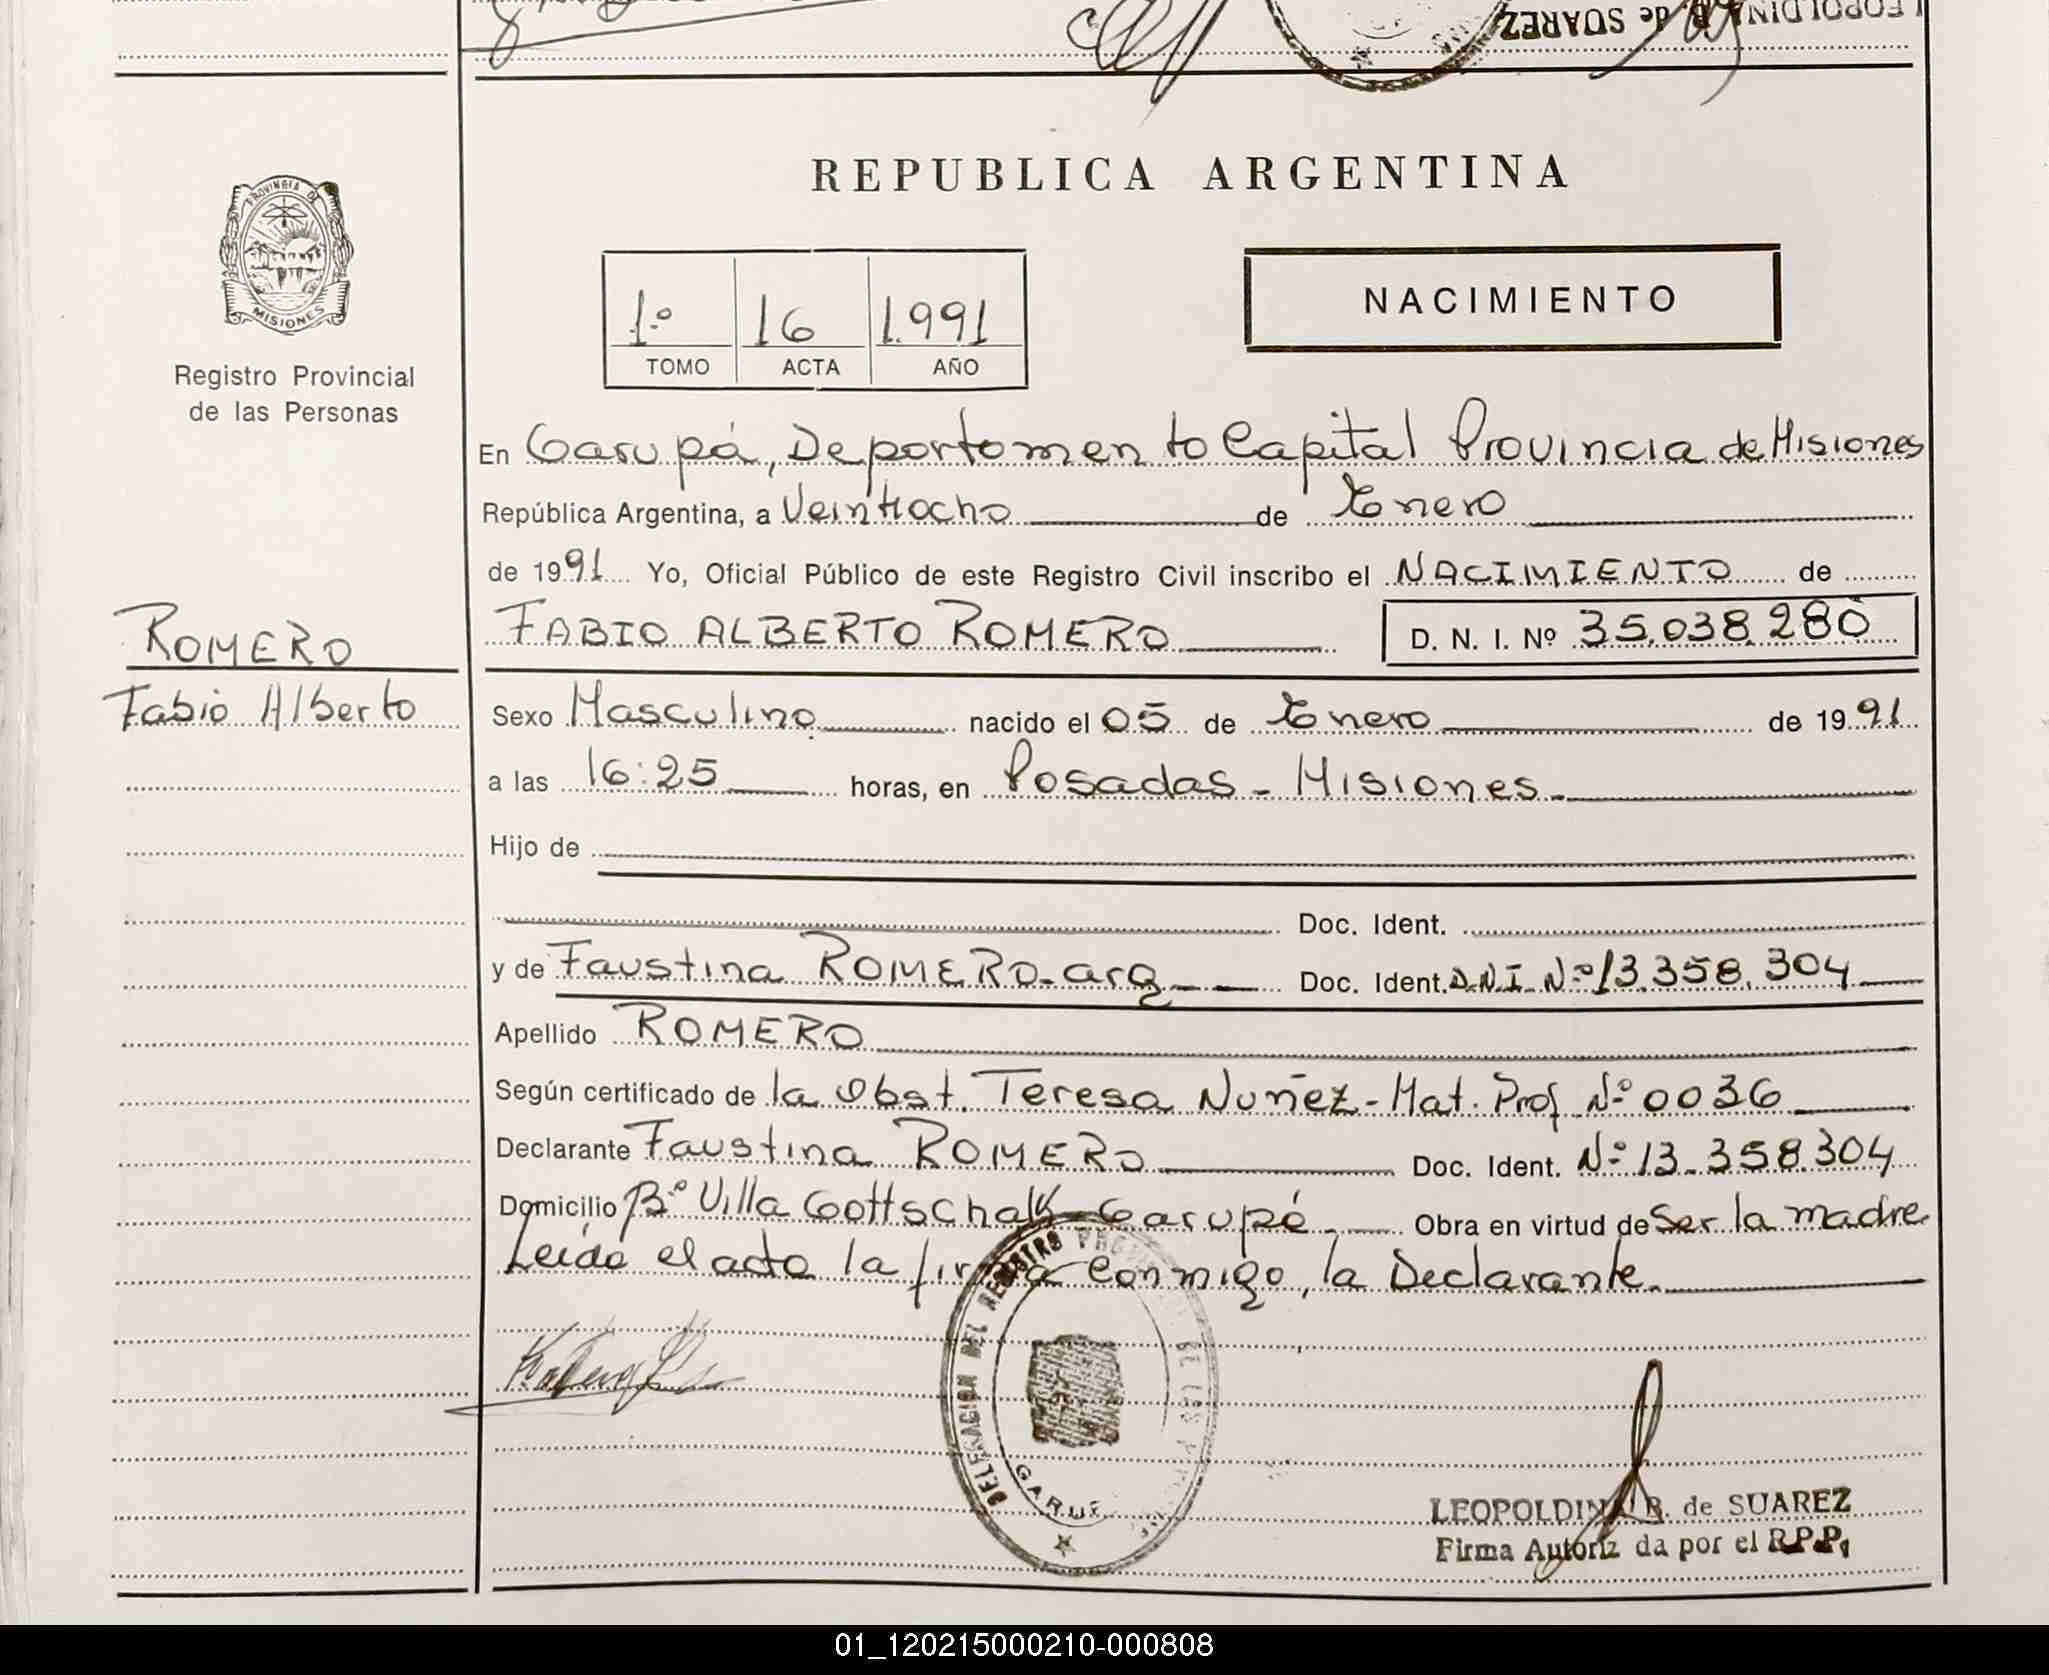 LEOPOLDINA B. de SUAREZ
REPUBLICA ARGENTINA
PROVINCIA DE
MISIONES
Registro Provincial
de las Personas
1º 16 1.991
TOMO ACTA AÑO
NACIMIENTO
En Garupá, Departamento Capital Provincia de Misiones
República Argentina, a Veintiocho de Enero
de 1991 Yo, Oficial Público de este Registro Civil inscribo el NACIMIENTO de
ROMERO
FABIO ALBERTO ROMERO D. N. I. Nº 35.038.280
Fabio Alberto
Sexo Masculino nacido el 05 de Enero de 1991
a las 16:25 horas, en Posadas - Misiones -
Hijo de
Doc. Ident.
y de Faustina ROMERO - arg - Doc. Ident. D.N.I. Nº 13.358.304
Apellido ROMERO
Según certificado de la Obst. Teresa Nuñez - Mat. Prof Nº 0036
Declarante Faustina ROMERO Doc. Ident. Nº 13.358.304
Domicilio Bº Villa Gottschalk - Garupá - Obra en virtud de Ser la madre
Leída el acta la firma conmigo, la Declarante.
DELEGACION DEL REGISTRO PROVINCIAL DE LAS
GARUPA
LEOPOLDINA B. de SUAREZ
Firma Autoriz da por el R.P.P.
01_120215000210-000808